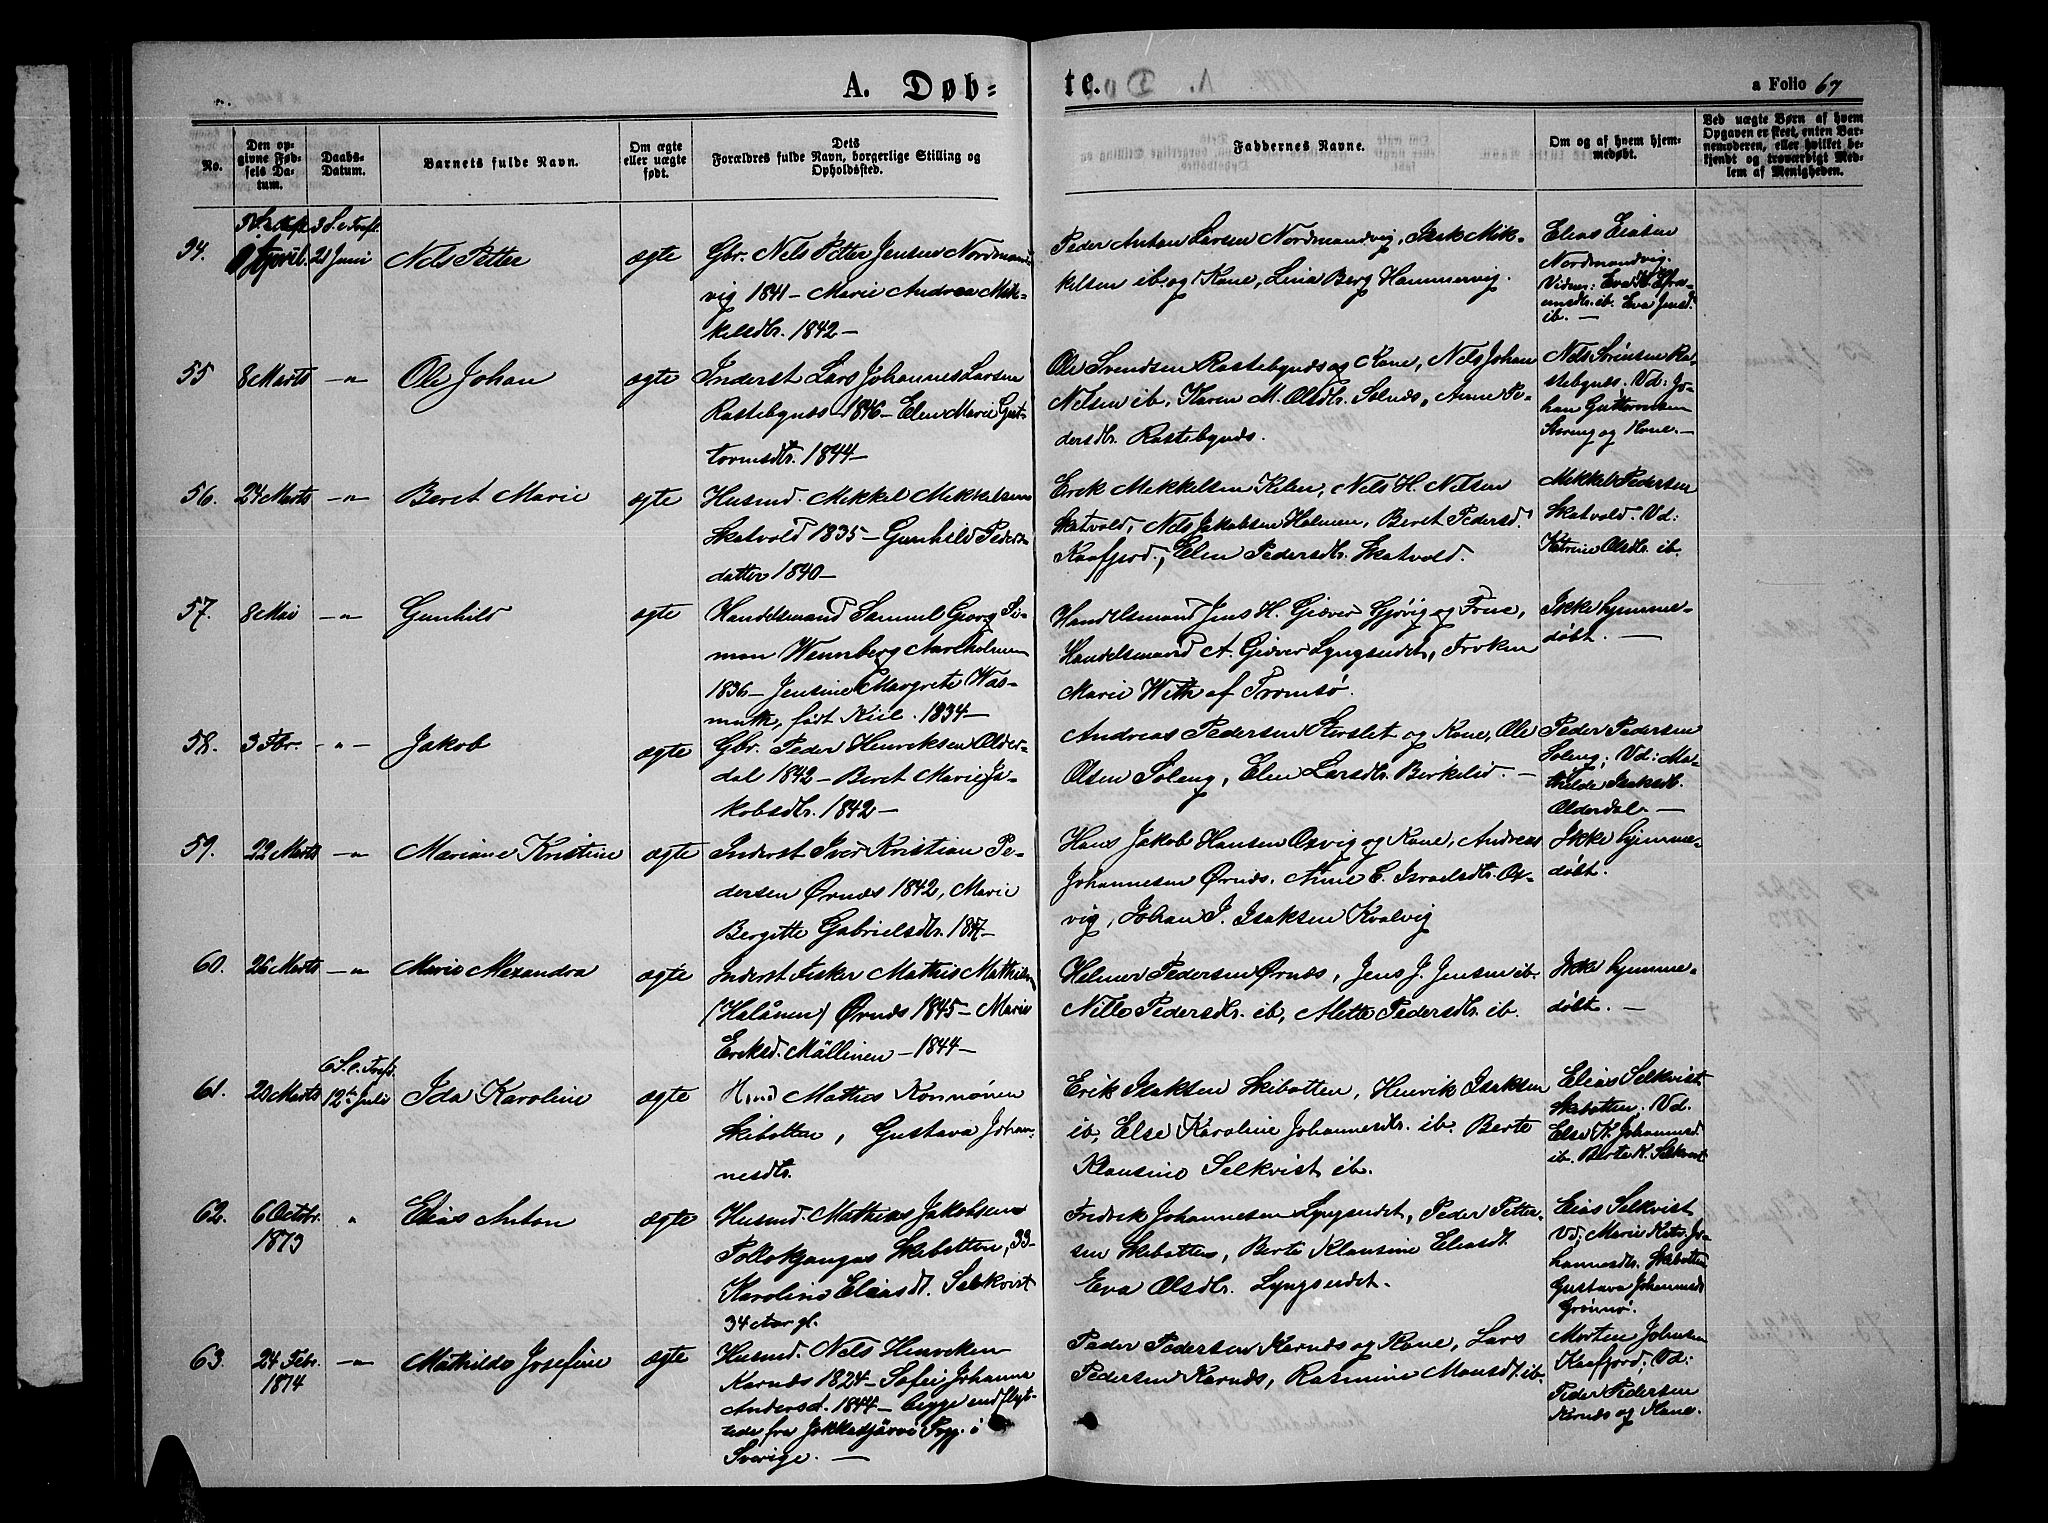 A. Døb=
te.
a Folio 67
No.
Den op-
givne Fød-
sels Da-
tum.
Daabs-
Datum.
Barnets fulde Navn.
Om ægte
eller uægte
født.
Dets
Forældres fulde Navn, borgerlige Stilling og
Opholdssted.
Faddernes Navne.
Om og af hvem hjem-
medøbt.
Ved uægte Børn af hvem
Opgaven er skeet, enten Bar-
nemoderen, eller hvilket be-
kjendt og troværdigt Med-
lem af Menigheden.
3 S. e. Treft.
54. April 21 Juni Nels Petter ægte Gbr. Nels Petter Jensen Nordmand-
vig 1841 – Marie Andrea Mik-
kelsdtr. 1842 –
Peder Anton Larsen Nordmandvig, Isak Mik-
kelsen ib. og Kone, Lina Berg Hammervig.
Elias
Nordmandvig.
Vidn: Eva
ib. Eva Jensd.
ib. –
55 8 Marts –"– Ole Johan ægte Inderst Lars Johannes Larsen
Rastebynæs 1846 – Elen Marie Gut-
tormsdtr. 1844 –
Ole Svendsen Rastebynæs og Kone, Nels Johan
Nelsen ib, Karen M. Olsdtr. Solnæs, Anne Pe-
dersdtr. Rastebynæs.
Nels Sörensen Ras-
stebynæs. Vd: Jo-
han Guttormsen
og Kone. –
56. 24 Marts –"– Beret Marie ægte Husmd. Mikkel Mikkelsen
Skatvold 1835 – Gunhild Peders-
datter 1840 –
Erik Mikkelsen Kilen, Nels H. Nelsen
Skatvold, Nels Jakobsen Holmen, Beret Pedersd.
Kaafjord, Elen Pedersdtr. Skatvold.
Mikkel Pedersen
Skatvold. Vd:
Katrine Olsdtr. ib.
57. 8 Mai –"– Gunhild ægte Handelsmand Samuel Georg Si-
mon Wennberg Aareholmen
1836 – Jensine Margrete Was-
muth, født Kiil. 1834 –
Handelsmand Jens H. Giæver Gjøvig og Frue,
Handelsmand A. Giæver Lyngseidet, Frøken
Marie With af Tromsø.
Ikke hjemme-
døbt. –
58. 3 Fbr. –"– Jakob ægte Gbr. Peder Henriksen Older-
dal 1842 – Beret Marie Ja-
kobsdtr. 1842 –
Andreas Pedersen Storslet og Kone, Ole
Olsen Soleng, Elen Larsdtr. Birkelid. –
Peder Pedersen
Soleng; Vd: Ma-
thilde Isaksdtr.
Olderdal. –
59. 22 Marts –"– Mariane Kristine ægte Inderst Iver Kristian Pe-
dersen Ørnæs 1842, Marie
Bergitte Gabrielsdtr. 1847 –
Hans Jakob Hansen Oxvig og Kone, Andreas
Johannesen Ørnæs. Anne E. Israelsdtr. Ox-
vig, Johan J. Isaksen Kvalvig
Ikke hjemme-
døbt.
60. 26 Marts –"– Marie Alexandra ægte Inderst Fisker Mathis Mathisen
(Halånen) Ørnæs 1845 – Marie
Eriksd. Mällinen – 1844 –
Helmer Pedersen Ørnæs, Jens J. Jensen ib.
Nille Pedersdtr. ib, Mette Pedersdtr. ib.
Ikke hjemme-
døbt. –
6 S. e. Treft.
61. 20 Marts 12te Juli Ida Karoline ægte Mathis
Skibotten, Gustava Johan-
nesdtr.
Erik Isaksen Skibotten, Henrik Isaksen
ib, Else Karoline Johannesdtr. ib. Berte
Klausine Selkvist ib.
Elias Selkvist
Skibotten. Vd.
Else K. Johannesd.
ib. Berte K. Selkvist
62. 6 Octbr.
1873 " Elias Anton ægte Husmd. Mathias Jakobsen
Pollokjangas Skibotten, 33 –
Karoline Eliasd. Selkvist
34 Aar gl.
Fredrik Johannesen Lyngseidet, Peder Petter-
sen Skibotten, Berte Klausine Eliasdt.
Eva Olsdtr. Lyngseidet.
Elias Selkvist
Vd; Marie Katr. Jo-
hannesdtr. Skibotten
Gustava Johannesd.
63. 24 Febr.
1874 –"– Mathilde Josefine ægte Husmd. Nels Henriksen
Karnæs 1824 – Sofie Johanna
Andersd. 1844 – begge indflyt-
tede fra Jokkesjärvi Prgj. i
Sverige. –
Peder Pedersen Karnæs og Kone, Lars
Pedersen Karnæs, Rasmine Monsdt. ib.
Morten Johnsen
Kaafjord; Vd:
Peder Pedersen
Karnæs og Kone.